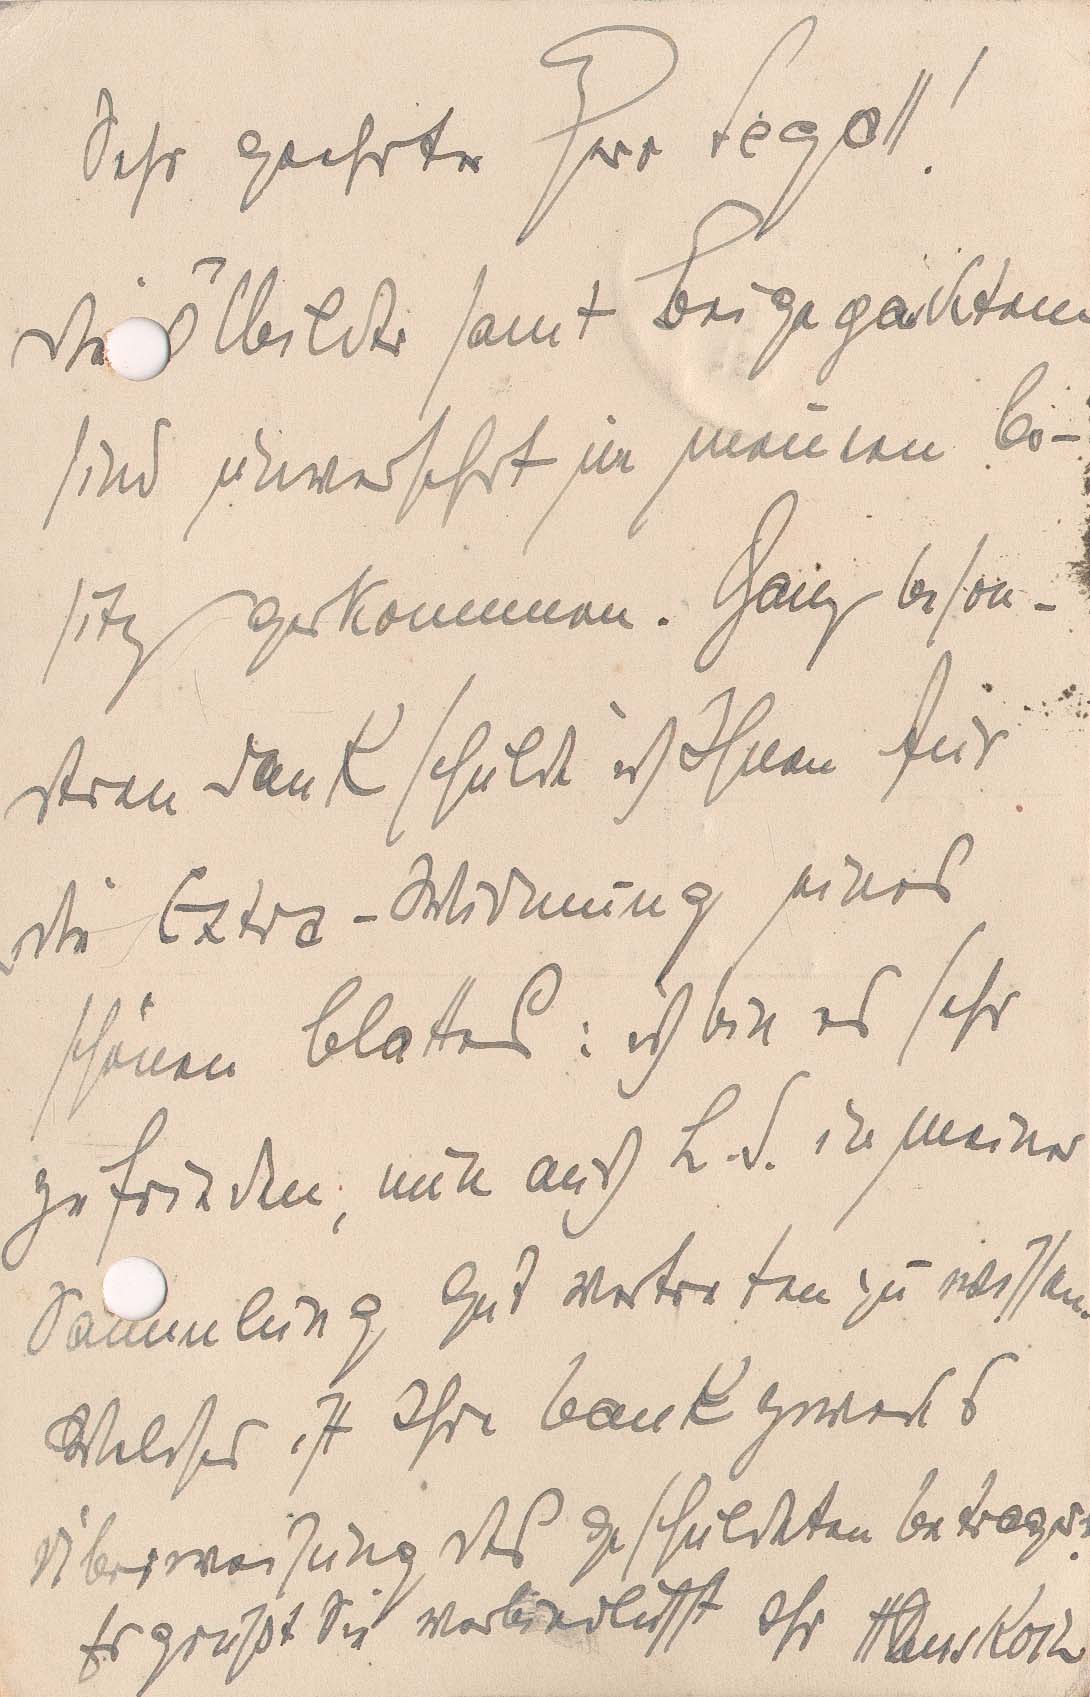 Sehr geehrter Herr Segall!
die Ölbilder samt Beigepackten
sind unversehrt in meinen Be-
sitz gekommen. Ganz beson-
deren Dank schulde ich Ihnen für
die Extra-Widmung eines
schönen Blattes: ich bin es sehr
zufrieden, nun auch L.S. in meiner
Sammlung gut vertreten zu wissen.
Welches ist Ihre Bank zwecks
Überweisung des geschuldeten Betrages?
Es grüßt Sie verbindlichst Ihr Hans Koch